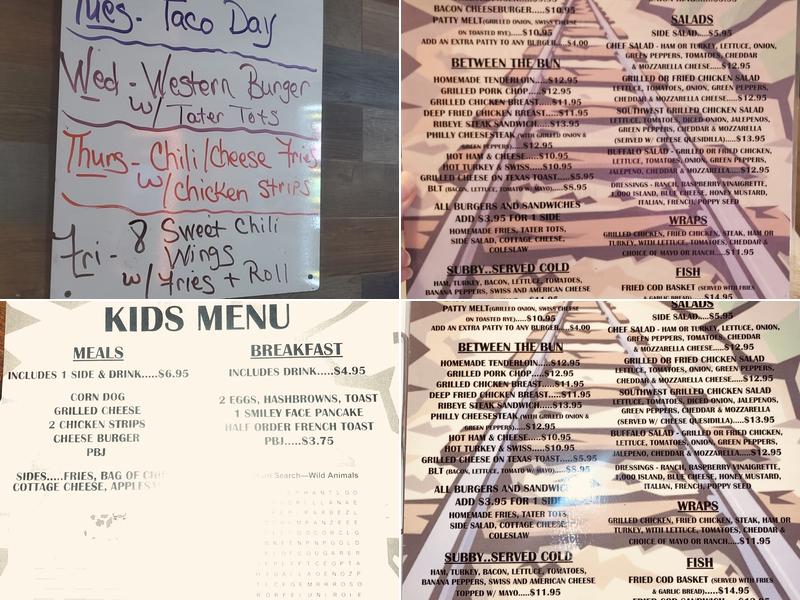 Tues. - Taco Day
Wed - Western Burger
w/ Tater Tots
Thurs - Chili/Cheese Fries
w/Chicken Strips
Fri - 8 Sweet Chili
Wings
w/ Fries + Roll
BACON CHEESEBURGER.....$10.95
PATTY MELT(GRILLED ONION, SWISS CHEESE
ON TOASTED RYE).....$10.95
ADD AN EXTRA PATTY TO ANY BURGER...$4.00
BETWEEN THE BUN
HOMEMADE TENDERLOIN...$12.95
GRILLED PORK CHOP.....$12.95
GRILLED CHICKEN BREAST....$11.95
DEEP FRIED CHICKEN BREAST...$11.95
RIBEYE STEAK SANDWICH....$13.95
PHILLY CHEESESTEAK (WITH GRILLED ONION &
GREEN PEPPERS).....$12.95
HOT HAM & CHEESE....$10.95
HOT TURKEY & SWISS....$10.95
GRILLED CHEESE ON TEXAS TOAST....$5.95
BLT (BACON, LETTUCE, TOMATO W/ MAYO)....$8.95
ALL BURGERS AND SANDWICHES
ADD $3.95 FOR 1 SIDE
HOMEMADE FRIES, TATER TOTS,
SIDE SALAD, COTTAGE CHEESE,
COLESLAW
SUBBY..SERVED COLD
HAM, TURKEY, BACON, LETTUCE, TOMATOES,
BANANA PEPPERS, SWISS AND AMERICAN CHEESE
SALADS
SIDE SALAD.....$5.95
CHEF SALAD - HAM OR TURKEY, LETTUCE, ONION,
GREEN PEPPERS, TOMATOES, CHEDDAR
& MOZZARELLA CHEESE....$12.95
GRILLED OR FRIED CHICKEN SALAD
LETTUCE, TOMATOES, ONION, GREEN PEPPERS,
CHEDDAR & MOZZARELLA CHEESE....$12.95
SOUTHWEST GRILLED CHICKEN SALAD
LETTUCE, TOMATOES, DICED ONION, JALEPENOS,
GREEN PEPPERS, CHEDDAR & MOZZARELLA
(SERVED W/ CHEESE QUESIDILLA)....$13.95
BUFFALO SALAD - GRILLED OR FRIED CHICKEN,
LETTUCE, TOMATOES, ONION, GREEN PEPPERS,
JALEPENO, CHEDDAR & MOZZARELLA....$12.95
DRESSINGS - RANCH, RASPBERRY VINAIGRETTE,
1,000 ISLAND, BLUE CHEESE, HONEY MUSTARD,
ITALIAN, FRENCH, POPPY SEED
WRAPS
GRILLED CHICKEN, FRIED CHICKEN, STEAK, HAM OR
TURKEY, WITH LETTUCE, TOMATOES, CHEDDAR &
CHOICE OF MAYO OR RANCH...$11.95
FISH
FRIED COD BASKET (SERVED WITH FRIES
& GARLIC BREAD)....$14.95
KIDS MENU
MEALS
INCLUDES 1 SIDE & DRINK.....$6.95
CORN DOG
GRILLED CHEESE
2 CHICKEN STRIPS
CHEESE BURGER
PBJ
SIDES.....FRIES, BAG OF
COTTAGE CHEESE,
BREAKFAST
INCLUDES DRINK.....$4.95
2 EGGS, HASHBROWNS, TOAST
1 SMILEY FACE PANCAKE
HALF ORDER FRENCH TOAST
PBJ.....$3.75
Search—Wild Animals
PATTY MELT(GRILLED ONION, SWISS CHEESE
ON TOASTED RYE)....$10.95
ADD AN EXTRA PATTY TO ANY BURGER...$4.00
BETWEEN THE BUN
HOMEMADE TENDERLOIN...$12.95
GRILLED PORK CHOP.....$12.95
GRILLED CHICKEN BREAST....$11.95
DEEP FRIED CHICKEN BREAST...$11.95
RIBEYE STEAK SANDWICH....$13.95
PHILLY CHEESESTEAK (WITH GRILLED ONION &
GREEN PEPPERS).....$12.95
HOT HAM & CHEESE....$10.95
HOT TURKEY & SWISS....$10.95
GRILLED CHEESE ON TEXAS TOAST....$5.95
BLT (BACON, LETTUCE, TOMATO W/ MAYO)....$8.95
ALL BURGERS AND SANDWICHES
ADD $3.95 FOR 1 SIDE
HOMEMADE FRIES, TATER TOTS,
SIDE SALAD, COTTAGE CHEESE,
COLESLAW
SUBBY..SERVED COLD
HAM, TURKEY, BACON, LETTUCE, TOMATOES,
BANANA PEPPERS, SWISS AND AMERICAN CHEESE
TOPPED W/ MAYO....$11.95
SALADS
SIDE SALAD.....$5.95
CHEF SALAD - HAM OR TURKEY, LETTUCE, ONION,
GREEN PEPPERS, TOMATOES, CHEDDAR
& MOZZARELLA CHEESE....$12.95
GRILLED OR FRIED CHICKEN SALAD
LETTUCE, TOMATOES, ONION, GREEN PEPPERS,
CHEDDAR & MOZZARELLA CHEESE....$12.95
SOUTHWEST GRILLED CHICKEN SALAD
LETTUCE, TOMATOES, DICED ONION, JALEPENOS,
GREEN PEPPERS, CHEDDAR & MOZZARELLA
(SERVED W/ CHEESE QUESIDILLA)....$13.95
BUFFALO SALAD - GRILLED OR FRIED CHICKEN,
LETTUCE, TOMATOES, ONION, GREEN PEPPERS,
JALEPENO, CHEDDAR & MOZZARELLA....$12.95
DRESSINGS - RANCH, RASPBERRY VINAIGRETTE,
1,000 ISLAND, BLUE CHEESE, HONEY MUSTARD,
ITALIAN, FRENCH, POPPY SEED
WRAPS
GRILLED CHICKEN, FRIED CHICKEN, STEAK, HAM OR
TURKEY, WITH LETTUCE, TOMATOES, CHEDDAR &
CHOICE OF MAYO OR RANCH...$11.95
FISH
FRIED COD BASKET (SERVED WITH FRIES
& GARLIC BREAD)....$14.95